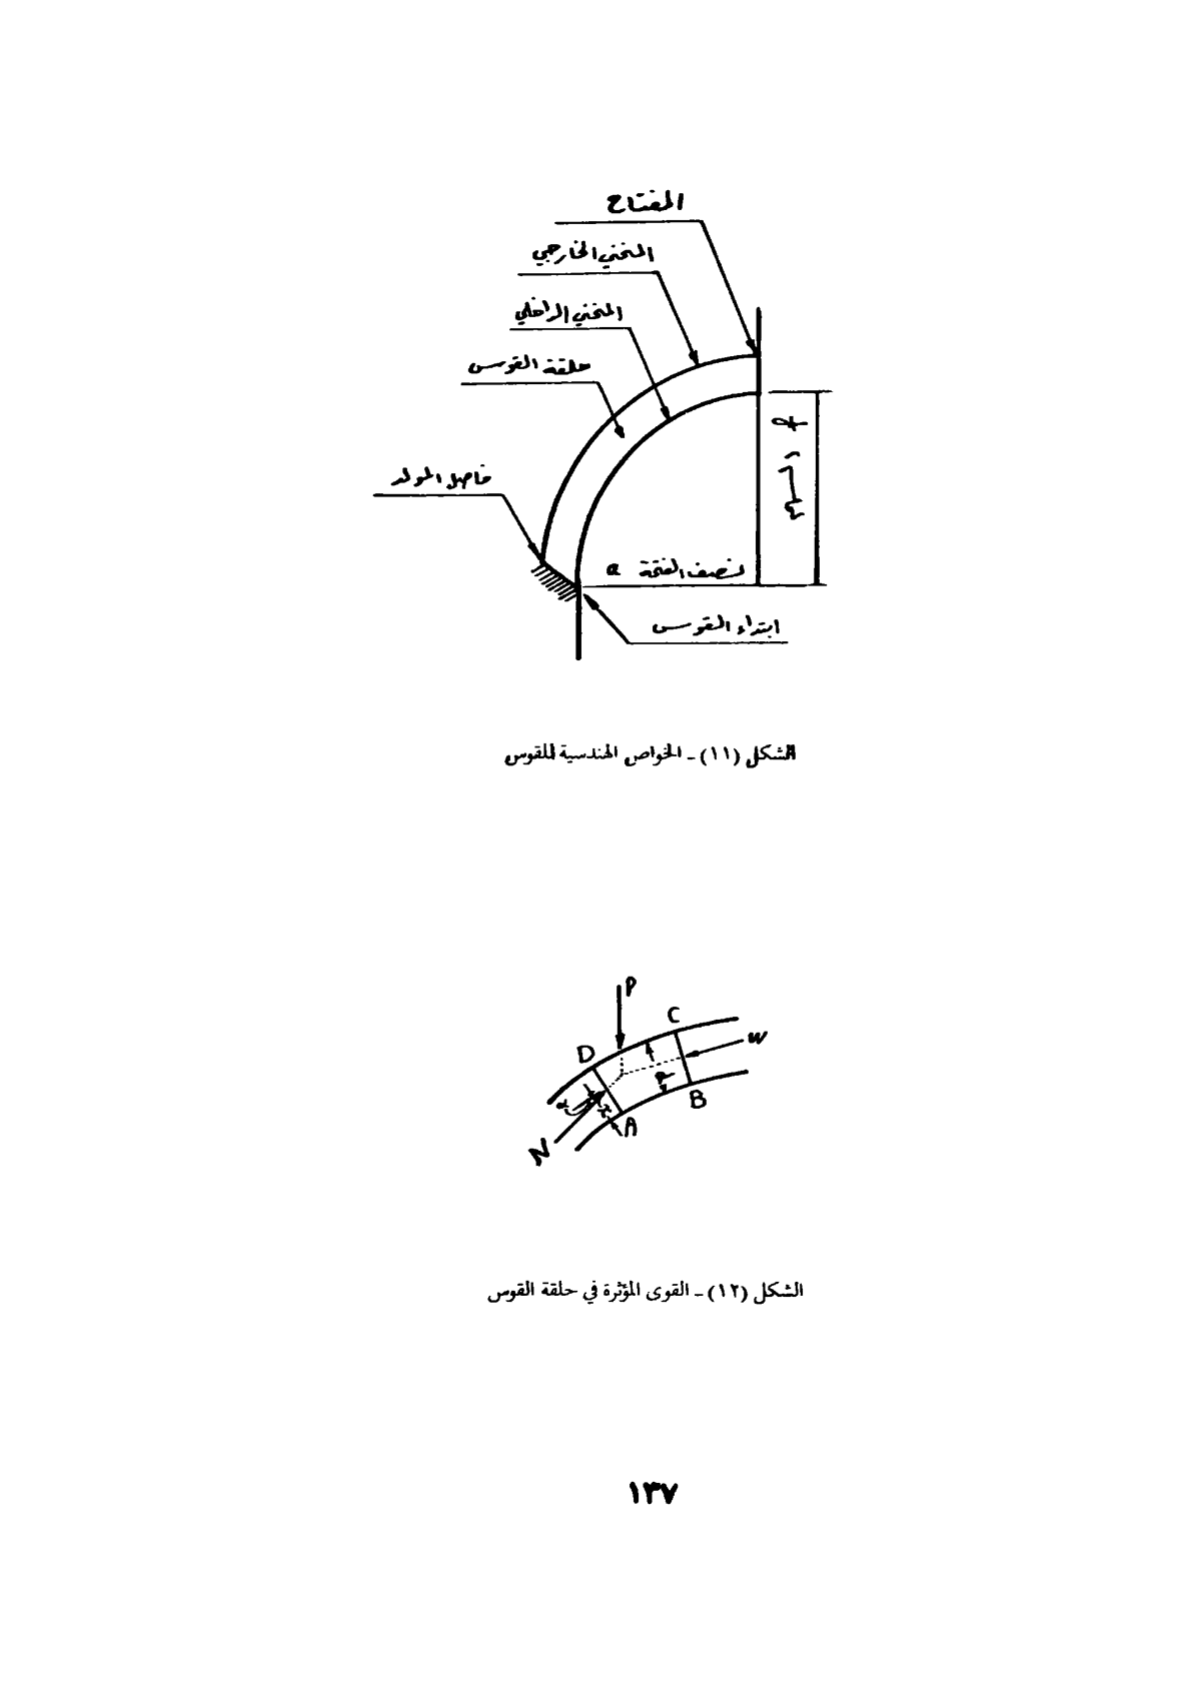 المفتاح
المنحني الخارجي
المنحني الداخلي
حلقة القوس
f
السهم
فاصل المولد
نصف الفتحة a
ابتداء القوس
الشكل (١١) ـ الخواص الهندسية للقوس
P
C
W
D
B
α
A
N
الشكل (١٢) ـ القوى المؤثرة في حلقة القوس
١٣٧